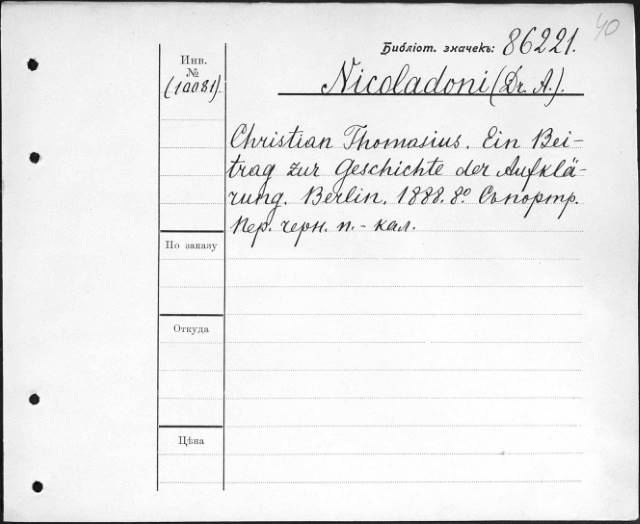 40
Библіот. значекъ: 86221.
Инв.
№
(10081).
Nicoladoni (Dr. A.).
Christian Thomasius. Ein Bei-
trag zur Geschichte der Aufklä-
rung. Berlin. 1888. 8º. Съ портр.
Пер. черн. п.-кал.
По заказу
Откуда
Цѣна